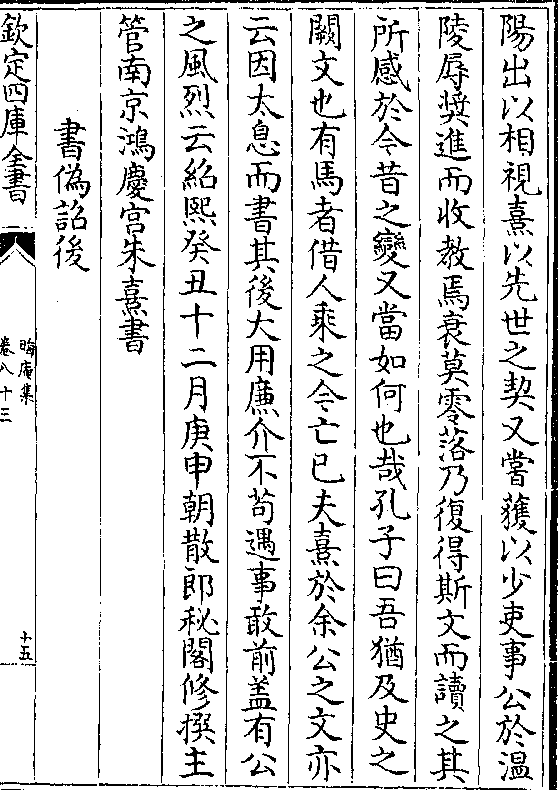 陽出以相視熹以先世之契又嘗獲以少吏事公於溫
陵辱奬進而收教焉衰莫零落乃復得斯文而讀之其
所感於今昔之變又當如何也哉孔子曰吾猶及史之
闕文也有馬者借人乘之今亡已夫熹於余公之文亦
云因太息而書其後大用廉介不苟遇事敢前盖有公
之風烈云紹熙癸丑十二月庚申朝散郎秘閣修撰主
管南京鴻慶宫朱熹書
書偽詔後
欽定四庫全書
晦庵集
卷八十三
十五